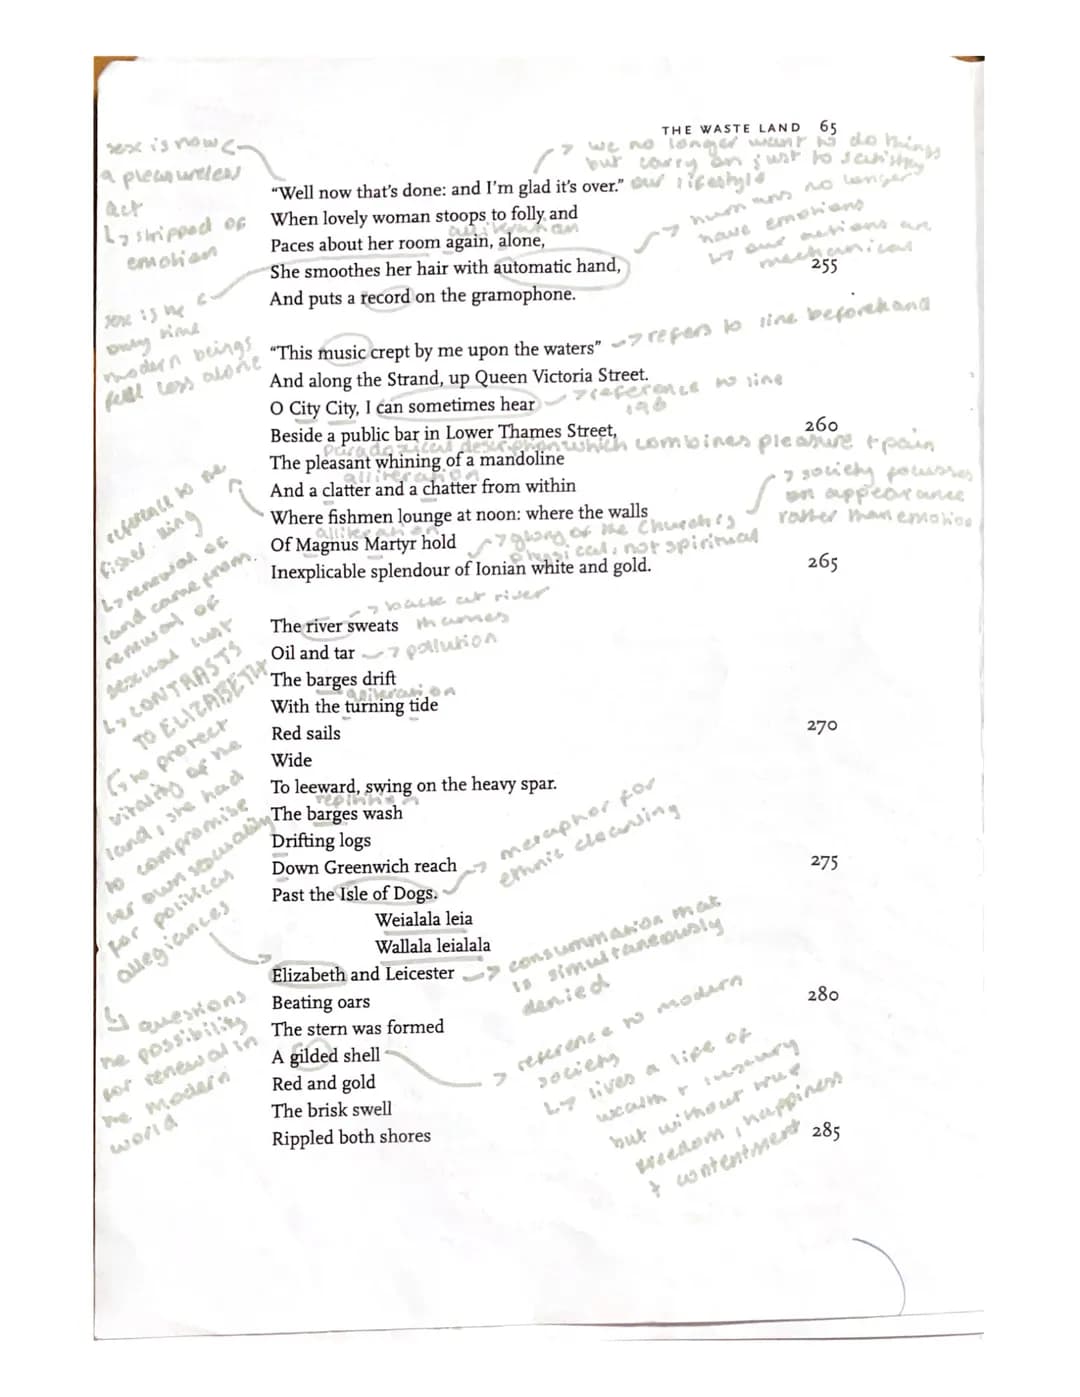 THE WASTE LAND 65
sex is now
a pleasureless
act
↳ stripped of
emotion
→ we no longer want to do things
but carry on just to satisfy
our lifestyle
"Well now that's done: and I'm glad it's over."
When lovely woman stoops to folly and
alliteration
Paces about her room again, alone,
She smoothes her hair with automatic hand,
255
And puts a record on the gramophone.
→ humans no longer
have emotions
↳ our actions are
mechanical
sex is the
only time
modern beings
feel less alone
"This music crept by me upon the waters"
→ refers to line beforehand
And along the Strand, up Queen Victoria Street.
O City City, I can sometimes hear
→ reference to line
198
Beside a public bar in Lower Thames Street,
260
Paradoxical description which combines pleasure + pain
The pleasant whining of a mandoline
alliteration
And a clatter and a chatter from within
Where fishmen lounge at noon: where the walls
alliteration
Of Magnus Martyr hold
→ glory of the Church is
physical, not spiritual
Inexplicable splendour of Ionian white and gold.
265
→ society focusses
on appearance
rather than emotion
reference to the
fisher king
↳ renewal of
land came from
renewal of
sexual lust
↳ CONTRASTS
TO ELIZABETH
↳ to protect
vitality of the
land, she had
to compromise
her own sexuality
for political
allegiances
→ back at river
thames
The river sweats
Oil and tar
→ pollution
The barges drift
alliteration
With the turning tide
Red sails
270
Wide
To leeward, swing on the heavy spar.
repitition
The barges wash
Drifting logs
Down Greenwich reach
275
Past the Isle of Dogs.
→ metaphor for
ethnic cleansing
Weialala leia
Wallala leialala
Elizabeth and Leicester
→ consummation that
is simultaneously
denied
Beating oars
280
The stern was formed
A gilded shell
Red and gold
The brisk swell
Rippled both shores
285
↳ questions
the possibility
for renewal in
the modern
world
→ reference to modern
society
↳ lives a life of
wealth + luxury
but without true
freedom, happiness
+ contentment